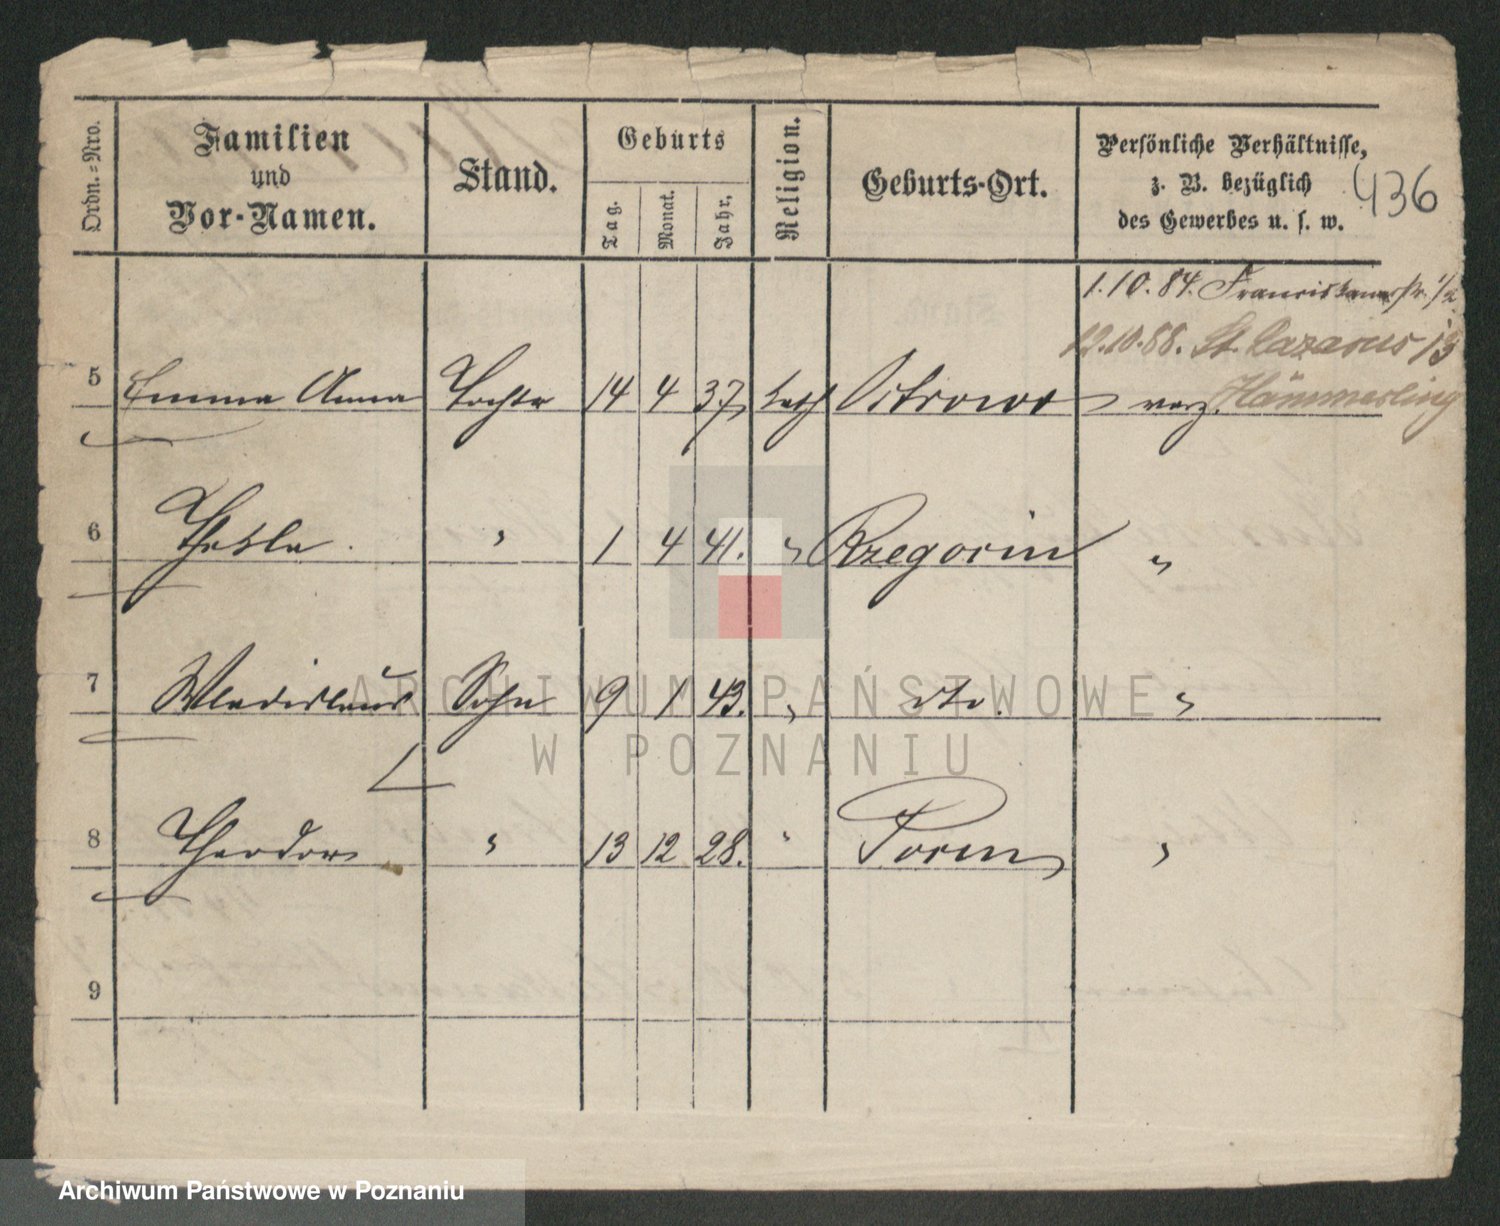 Ordn.-Nro.
Familien und Vor-Namen.
Stand.
Geburts
Tag.
Monat.
Jahr.
Religion.
Geburts-Ort.
Persönliche Verhältnisse,
z. B. bezüglich
des Gewerbes u. s. w.
436
1.10.84. Franciskanerstr. 1/2
12.10.88. St. Lazarus 13
Hämmerling
5 Emma Anna Tochter 14 4 37 kath Ostrowo verz.
6 Thekla. " 1 4 41. " Rzegocin "
7 Wladislaus Sohn 9 1 43. " dto. "
8 Theodor " 13 12 28. " Posen "
9
ARCHIWUM PAŃSTWOWE
W POZNANIU
Archiwum Państwowe w Poznaniu